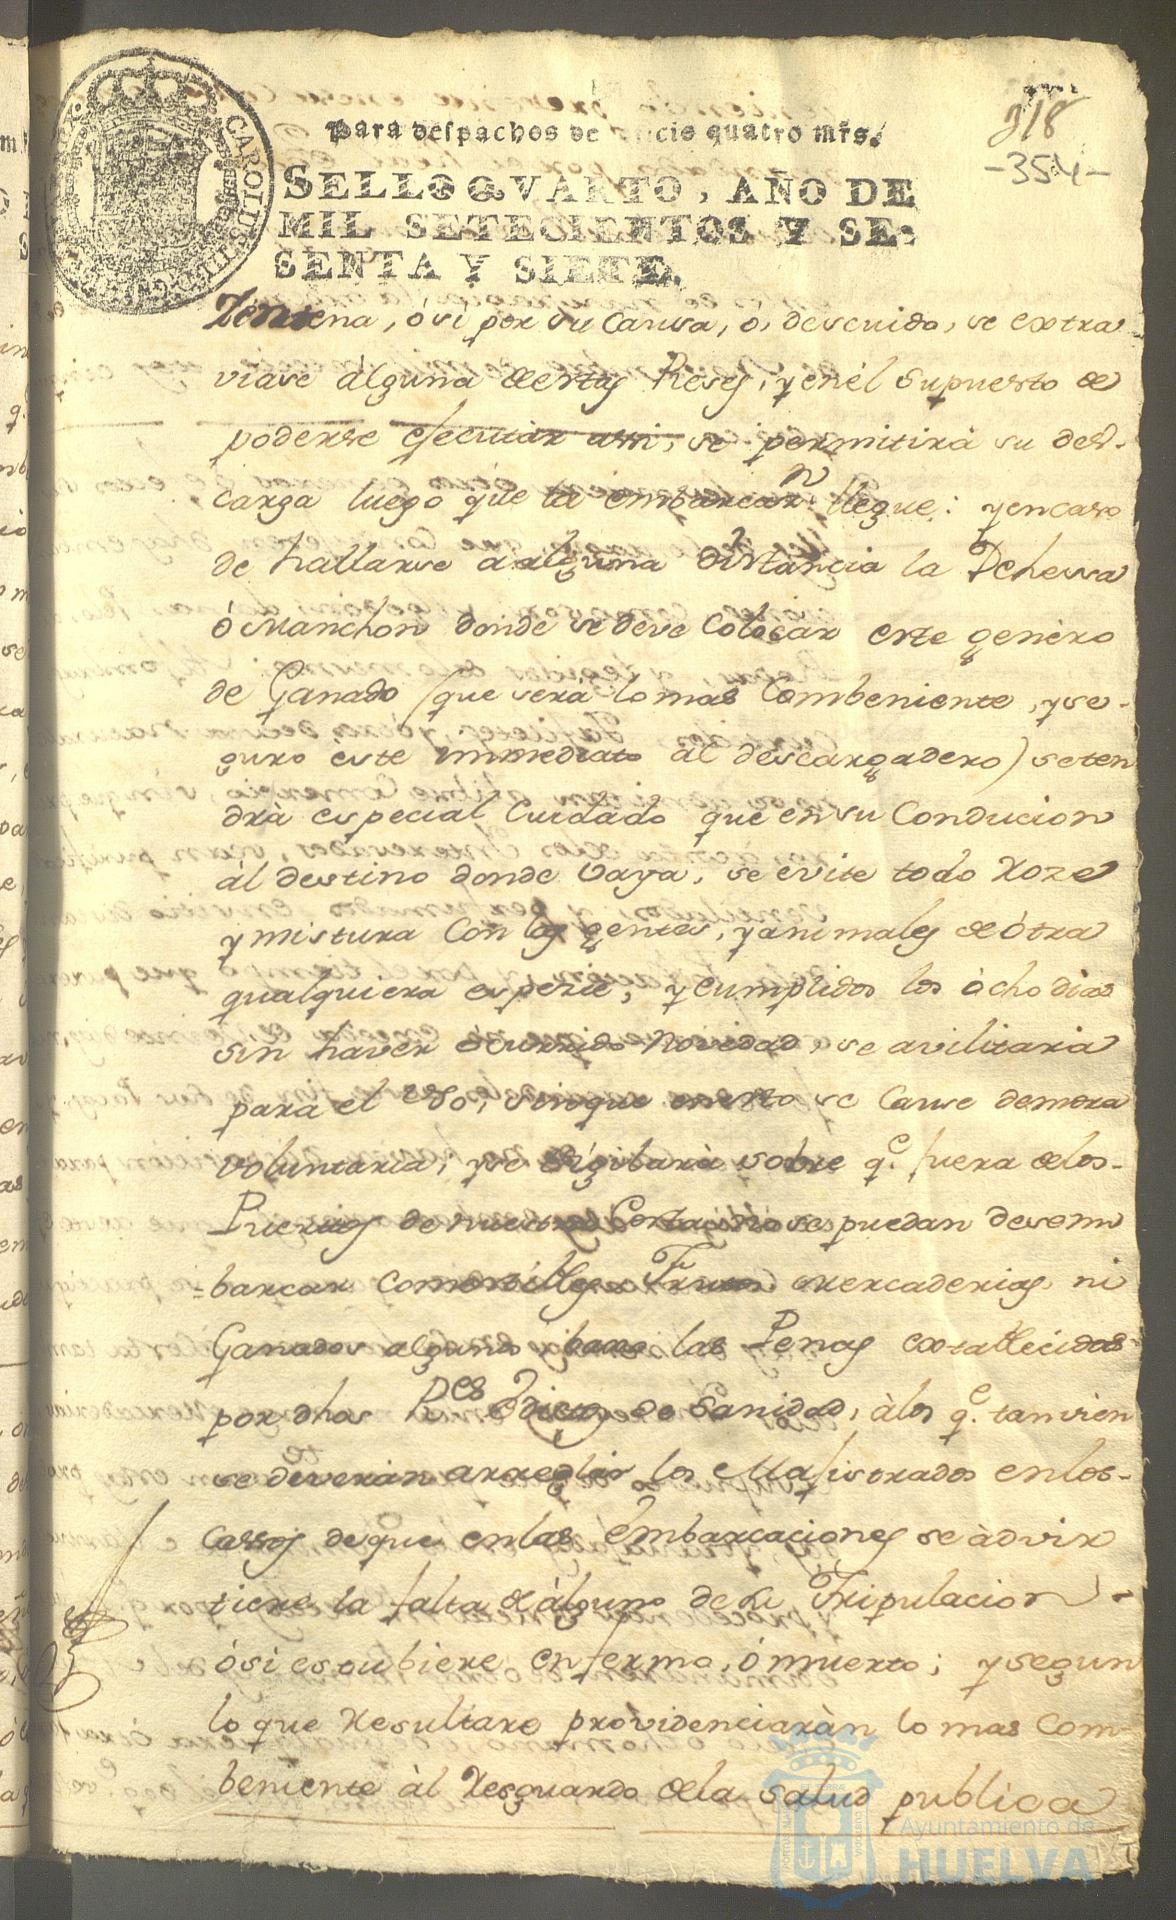 318
-354-
Para despachos de oficio quatro mrs.
SELLO QVARTO, AÑO DE
MIL SETECIENTOS Y SE-
SENTA Y SIETE.
CAROLUS III D G
Zentena, ó si por su Causa, ó, descuido, se extra
viase álguna de estas Reses, y en él supuesto de
poderse efecutar assi, se permitirá su des-
carga luego que la embarcan. llegue: y en caso
de hallarse a alguna distancia la Dehessa
ó Manchon donde se deve Colocar este genero
de Ganado (que será lo mas Combeniente, y se-
guro éste immediato al descargadero) se ten
drà especial Cuidado que en su Conducion
ál destino donde Vaya, se evite todo Roze
y mistura Con las gentes, y animales de ótra
qualquiera espezie, y cumplidos los ócho dias
sin haver ócurrido novedad, se avilitará
para el Uso, sin que en esto se Cause demora
Voluntaria, y se Vigilarà sobre q.e fuera de los-
Puertos de nuestras Costas no se puedan desem
=barcar Comestibles Frutos mercaderias, ni
Ganados algunos baxo las Penas extablecidas
por dhas R.es Edictos de Sanidad, à los q.e tamvien
se deverán arreglar los Comisionados en los-
Cassos de que en las Embarcaciones se àdvir
tiere la falta de álguno de su Tripulacion -
ó si estubiere enfermo, ó muerto; y segun
lo que Resultare providenciaràn lo mas Com-
beniente àl Resguardo de la salud publica
Ayuntamiento de
HUELVA